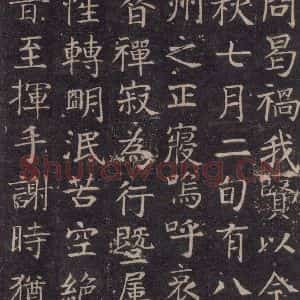 曷禍我賢以今
秋七月二旬有八
州之正寢嗚呼哀
禪寂為行暨屬
性轉明泯苦空絕
至揮手謝時猶
Shufawang.CN